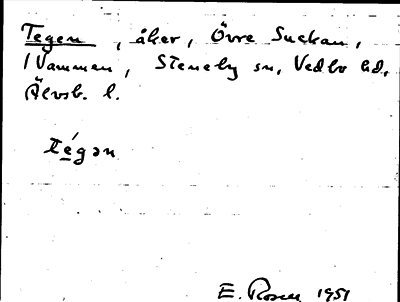 Tegen, åker, Övre Suckan,
Vammen, Steneby sn, Vedbo hd,
Älvsb. l.
tégən
E. Rosen 1951